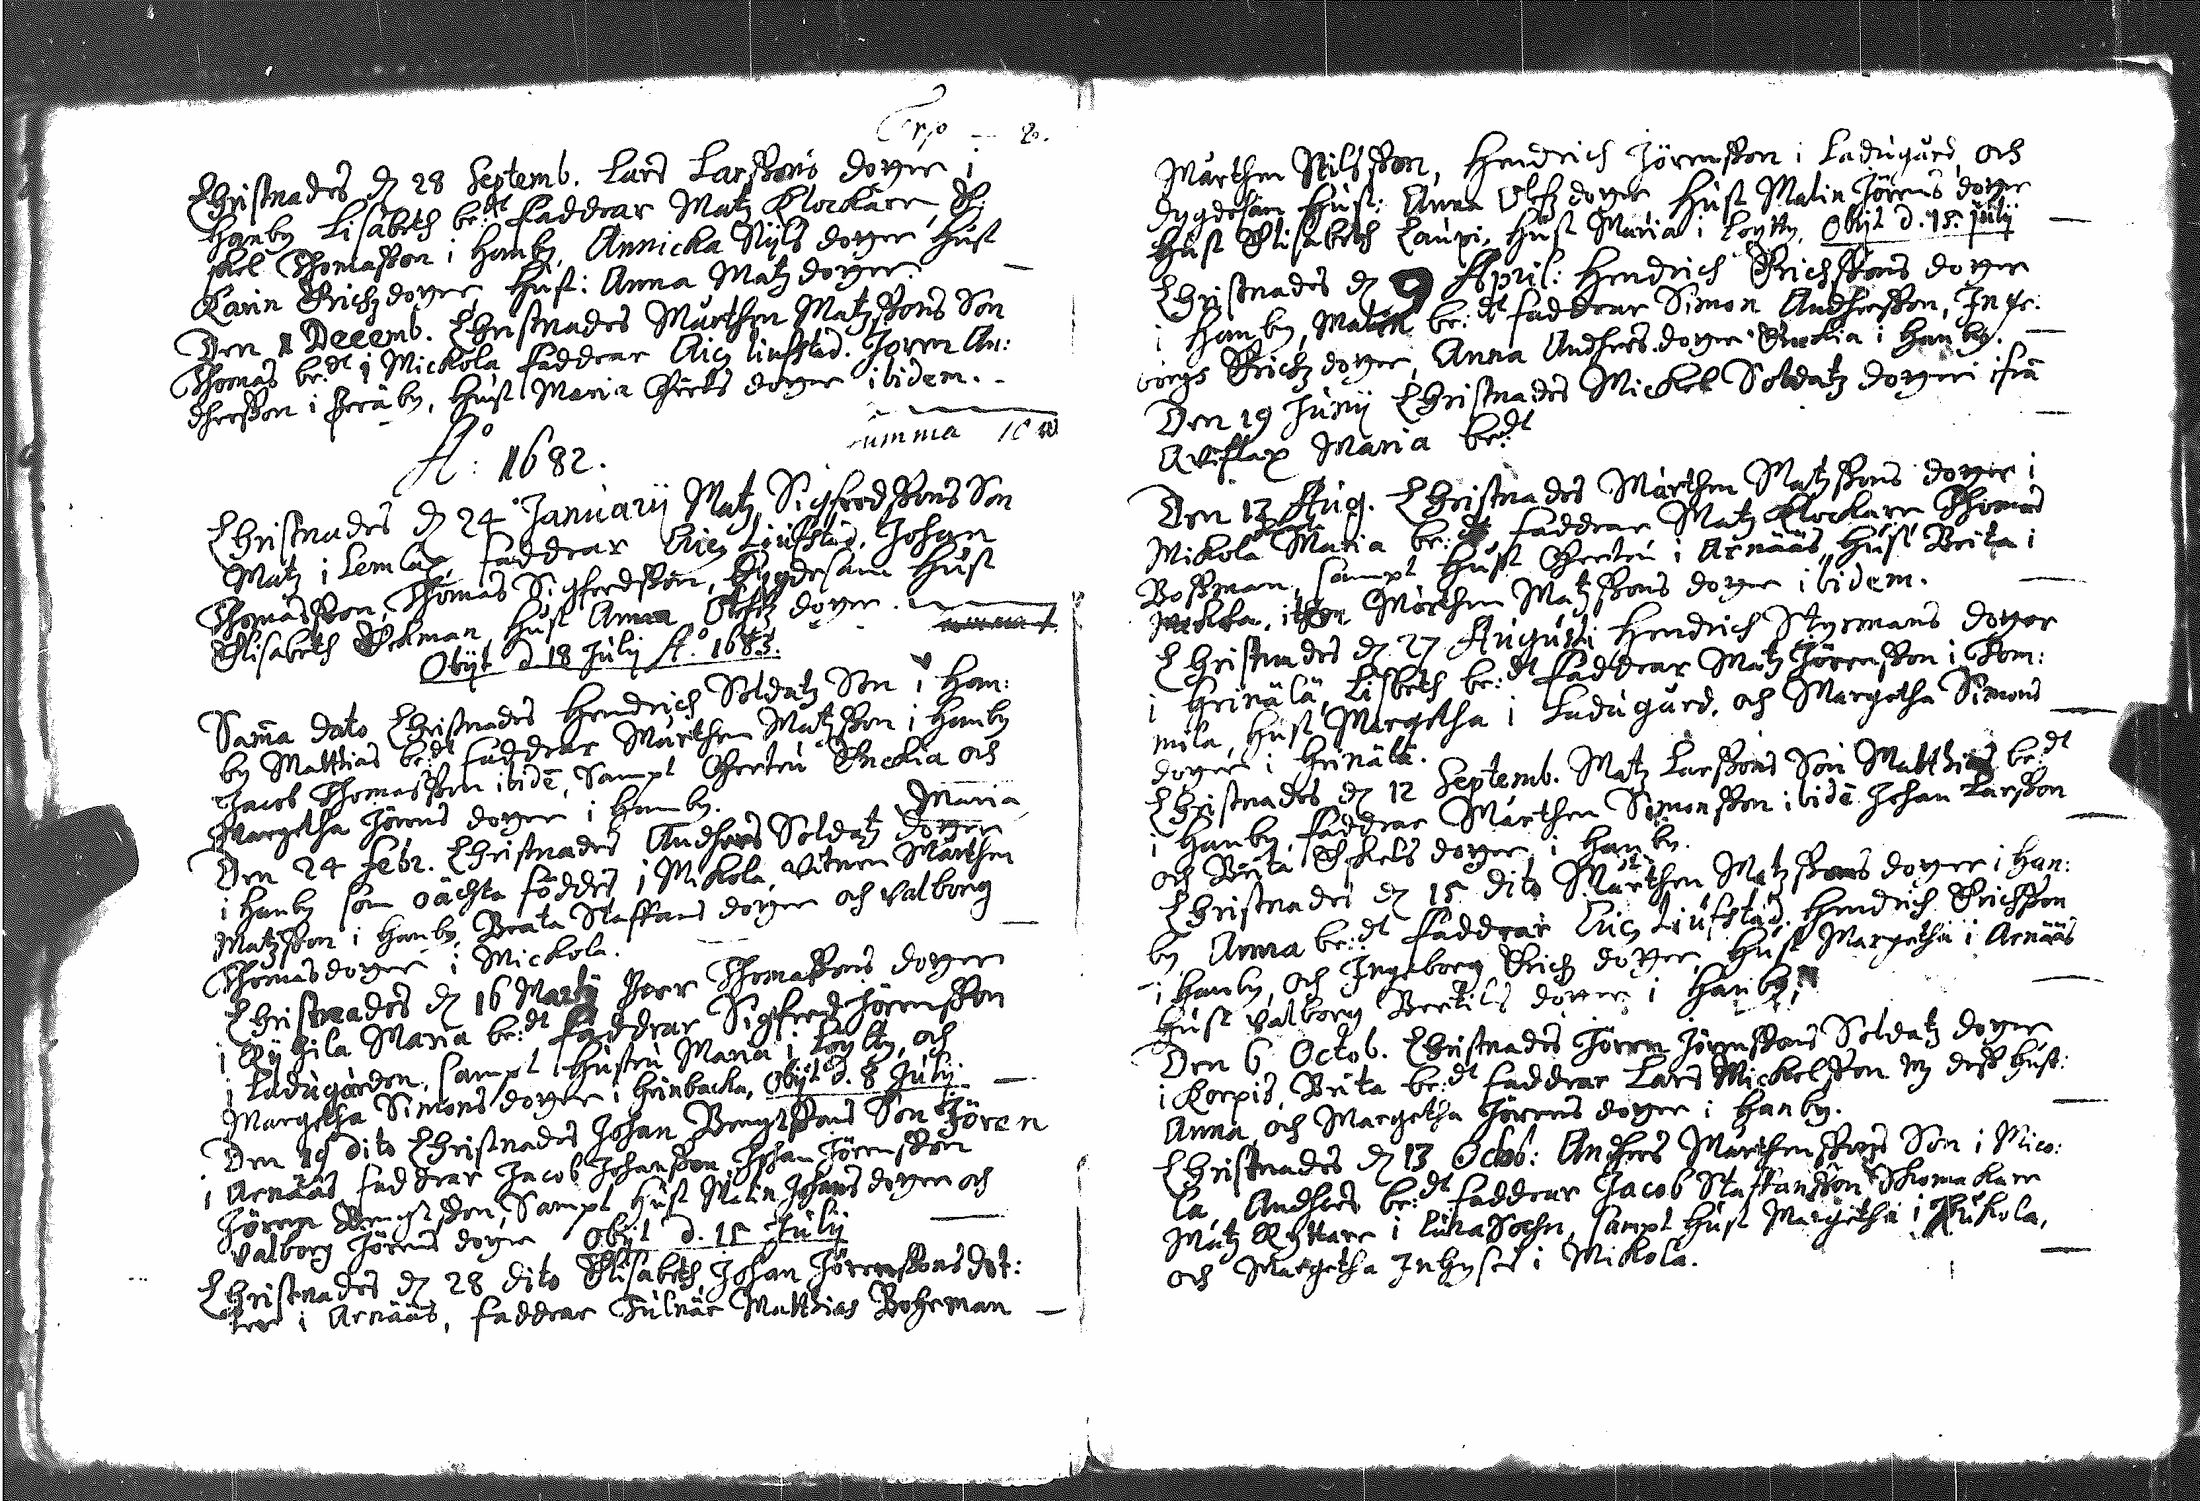 Christnades d 28 Septemb. Lars Larssons doter i
Hanby Lisabeth be:dt Faddrar Matz Klockare,
Thomasson i Hanby, Annicka Nils doter Hust
Karin Erichz doter, Hust: Anna Matz doter.
Den 1 Decemb. Christnades Mårthen Matzssons Son
Thomas be:dt i Mickola Faddrar Jören An:
dhersson i Peräby, Hust Maria doter ibidem.
Summa
A:o 1682.
Christnades d 24 Januarij Matz Sigfredssons Son
Matz i Lemlax, Faddrar Johan
Thomasson, Thomas Sigfredsson, dygdesam Hust
Elisabeth Ekman, Hust Anna doter.
Obijt d 18 Julij A:o 1683.
Samma dato Christnades Hendrich Soldatz Son i Han:
by Matthias be:dt Faddrar Mårthen Matzsson i Hanby
Jacob Thomasson ibidē, Sampt Gertru Enckia och
Margetha Jörens doter i Hanby.
Maria
Den 24 Febr. Christnades Andhers Soldatz doter
i Hanby som oächta föddes i Mikola, vitnen Mårthen
Matzsson i Hanby, Beata Staffans doter och Valborg
Thomas doter i Mickola.
Christnades d 16 Martij Peer Thomassons doter
i Maria be:dt Faddrar Sigfred Jörensson
i Ladugården, sampt Hustru Maria i Löytty, och
Margetha Simons doter i Heinbacka, Obijt d. 8 Julij.
Den 19 dito Christnades Johan Bengtssons Son Jören
i Arnääs Faddrar Jacob Johansson, Johan Jörensson
Jören Bengtsson, Sampt Hust Malin Johans doter och
Valborg Jörens doter Obijt d. 15 Julij
Christnades d 28 dito Elisabeth Johan Jörenssons dot:
ter i Arnääs, Faddrar Matthias Boheman
Mårthen Nilsson, Hendrich Jörensson i Ladugård och
dygdesam Hust: Anna doter Hust Malin Jörens doter
Hust Elisabeth Laupi, Hust Maria i Löytty, Obijt d. 15. Julij
Christnades d 9 April: Hendrich Erichssons doter
i Hanby, Malin be:dt Faddrar Simon Andhersson, Inge:
borgs Erichz doter, Anna Andhers doter Enckia i Hanby.
Den 19 Junij Christnades Mickel Soldatz doter ifrå
Maria be:dt
Den 13 Aug. Christnades Mårthen Matzssons doter i
Mikola Maria be:dt Faddrar Matz Klockare Thomas
Bossman, sampt Hust Gertru i Arnääs, Hust Brita i
Mårthen Matzssons doter ibidem.
Christnades d 27 Augusti Hendrich Styrmans doter
i Heinälä, Lisbeth be:dt Faddrar Matz Jörensson i Tom:
mila, Hust Margetha i Ladugård, och Margetha Simons
doter i Heinälä.
Christnades d 12 Septemb. Matz Larssons Son Matthias be:dt
i Hanby, Faddrar Mårthen Simonsson ibidē Johan Larsson
och Brita doter i Hanby.
Christnades d 15 dito Mårthen Matzssons doter i Han:
by Anna be:dt Faddrar Hendrich Erichsson
i Hanby, och Ingeborg Erichz doter, Hust Margetha i Arnääs
Hust Valborg Bertils doter i Hanby.
Den 6 Octob. Christnades Jören Jörenssons Soldatz doter
i Korpis, Brita be:dt Faddrar Lars Mickelsson dess Hust:
Anna, och Margetha Jörens doter i Hanby.
Christnades d 13 Octob: Andhers Mårthenssons Son i Mico:
la, Andhers be:dt Faddrar Jacob Staffansson Skomakare
Matz Ryttare i Sochn, sampt Hust Margetha i Mikola,
och Margetha Inhyses i Mikola.